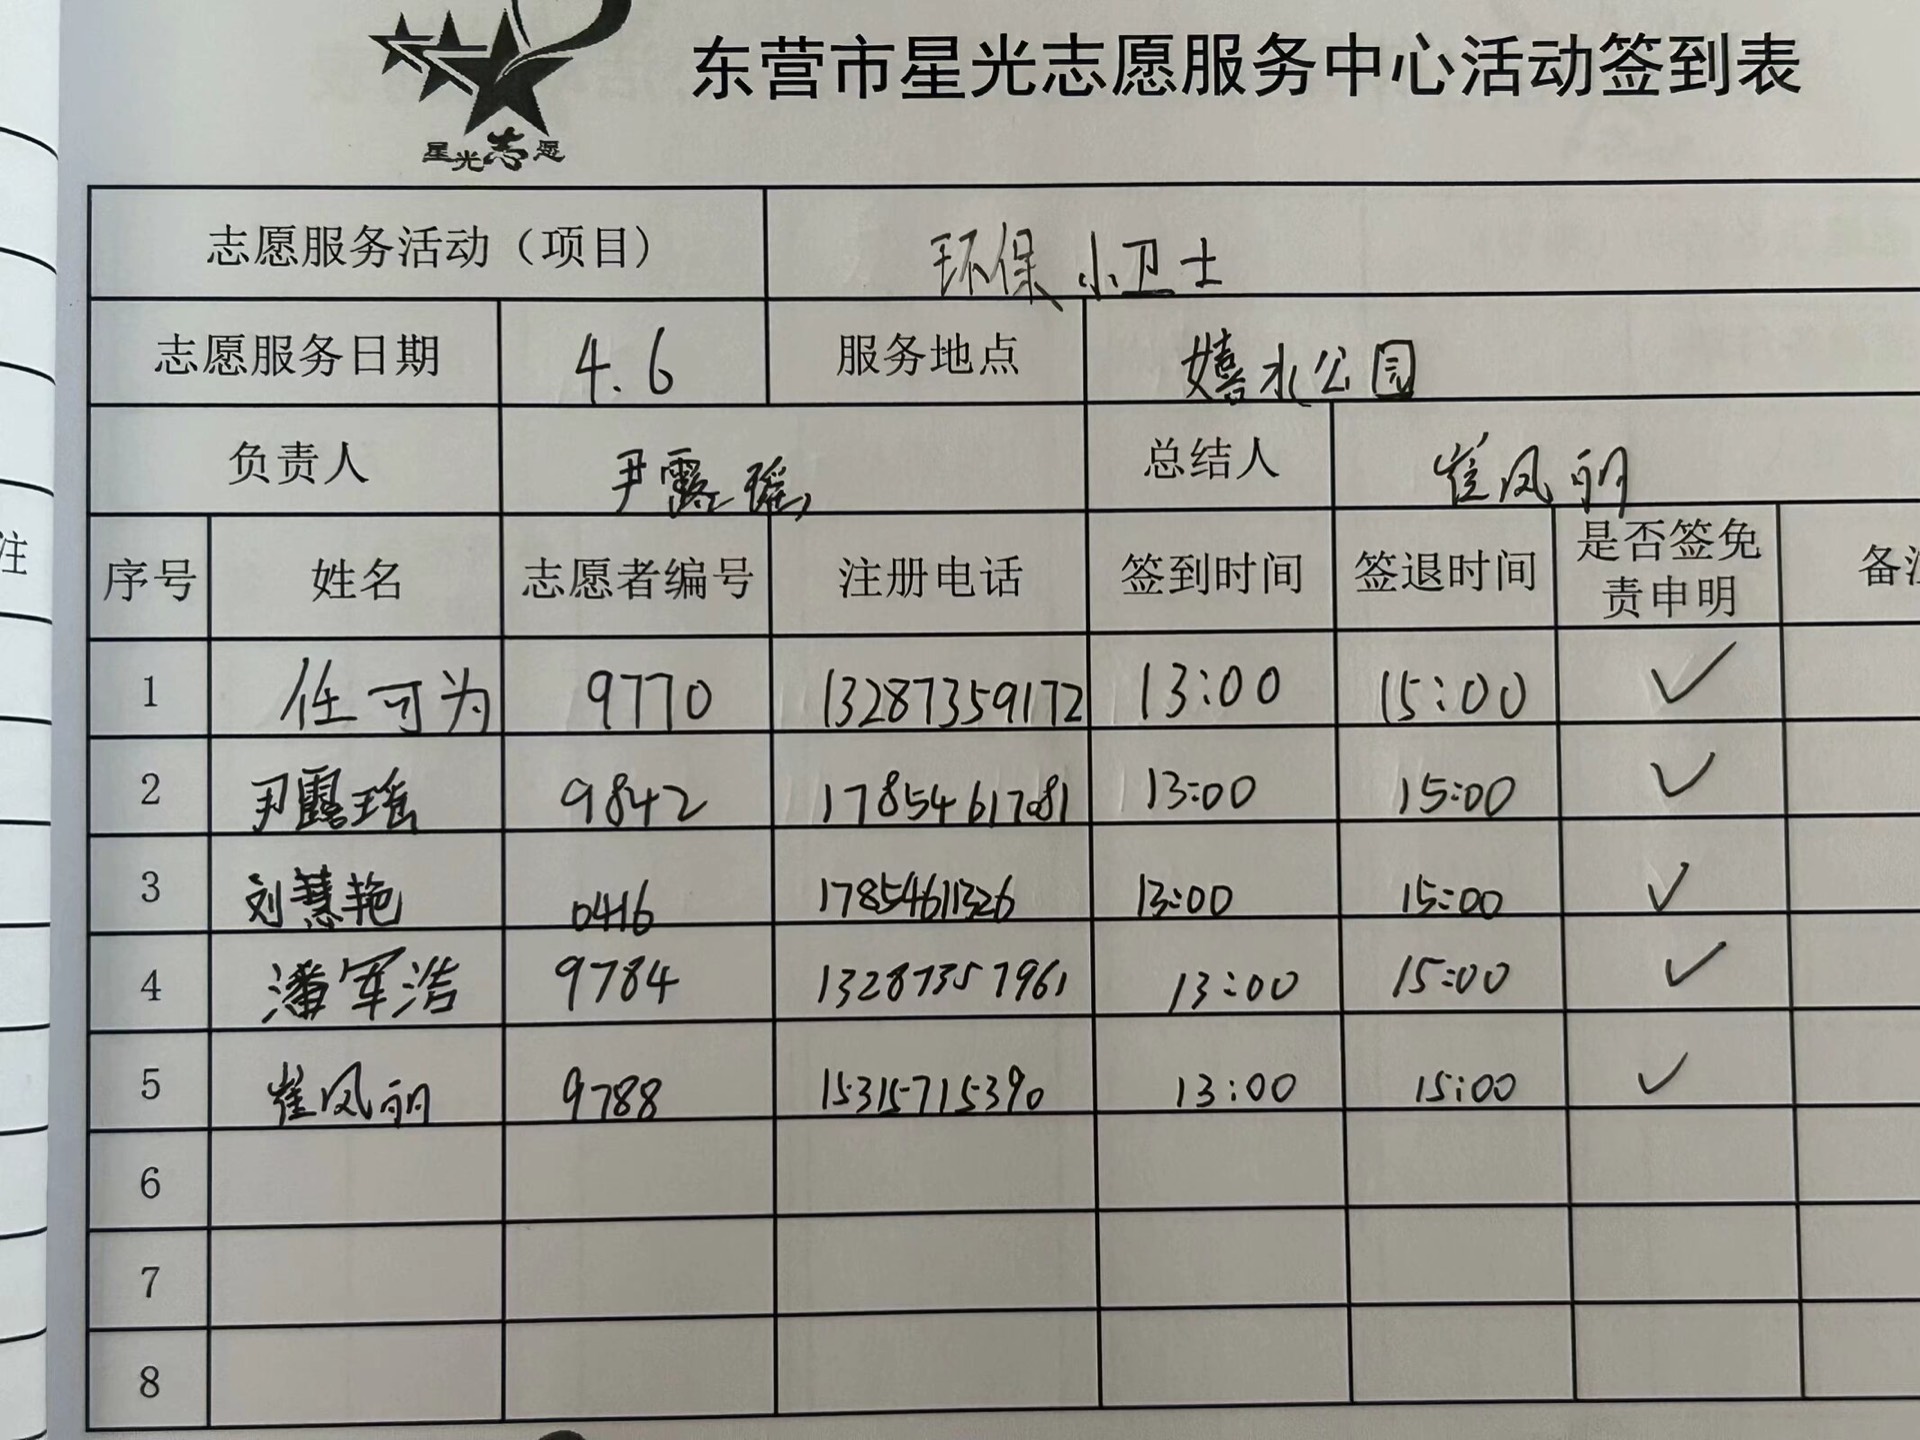 东营市星光志愿服务中心活动签到表
星光志愿
志愿服务活动（项目） 环保小卫士
志愿服务日期 4.6 服务地点 嬉水公园
负责人 尹露瑶 总结人 崔凤丽
注
序号 姓名 志愿者编号 注册电话 签到时间 签退时间 是否签免责申明 备注
1 任可为 9770 13287359172 13:00 15:00 ✓
2 尹露瑶 9842 17854617081 13:00 15:00 ✓
3 刘慧艳 0416 17854611326 13:00 15:00 ✓
4 潘军浩 9784 13287357961 13:00 15:00 ✓
5 崔凤丽 9788 15315715390 13:00 15:00 ✓
6
7
8